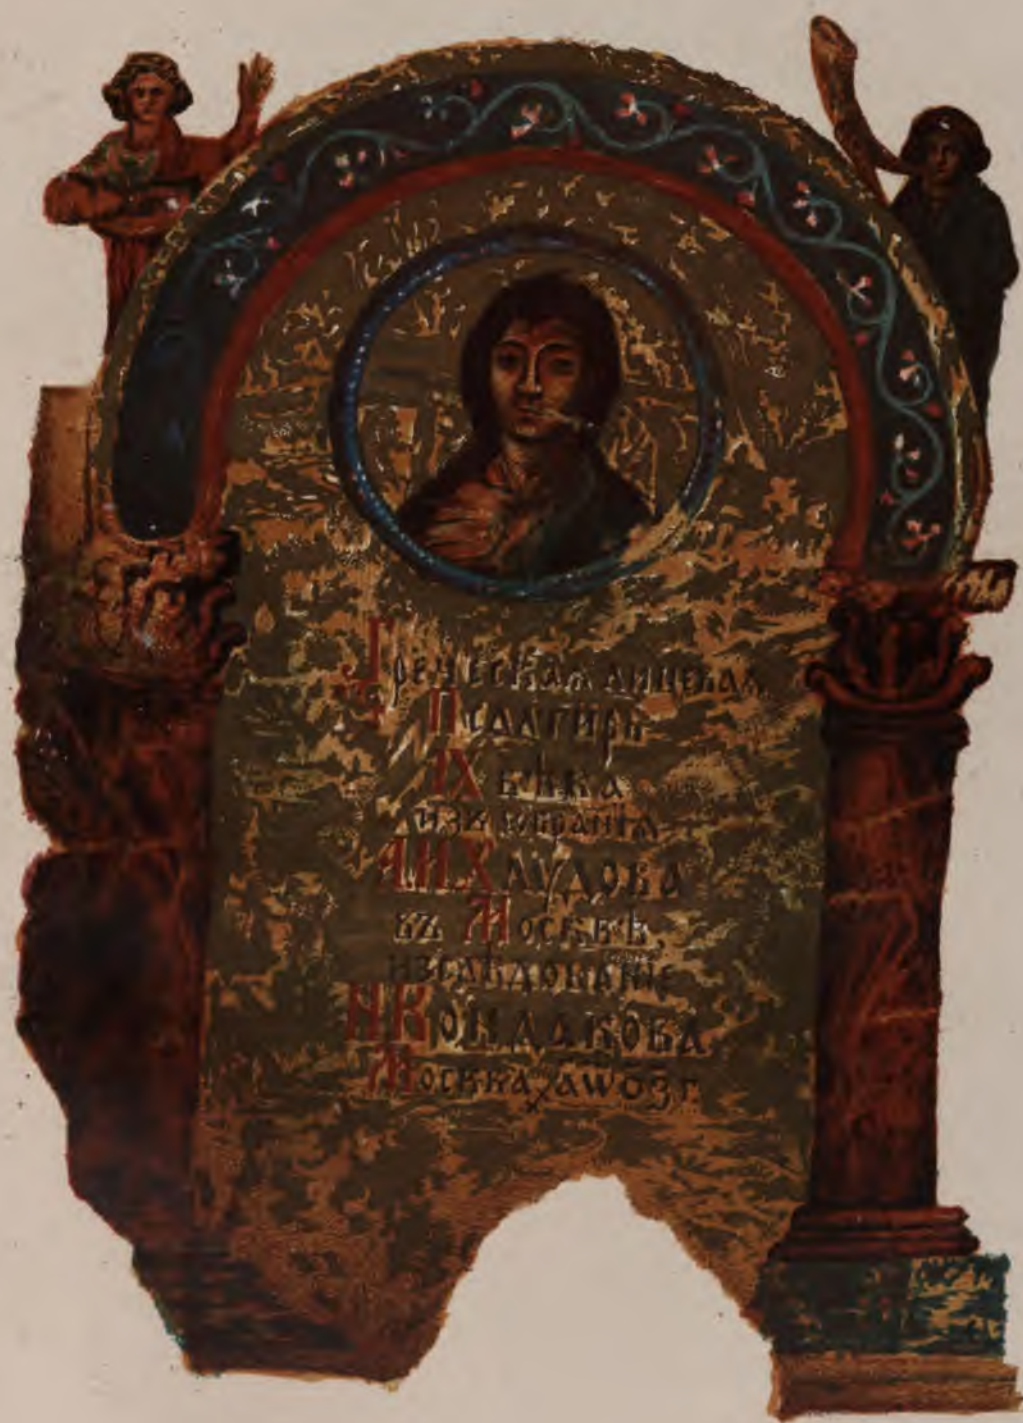 Греческая лицевая
Псалтирь
IX вѣка
изъ собранія
А И Хлудова
въ Москвѣ,
изслѣдованіе
Н Кондакова
Москва ҂аѡоз г.